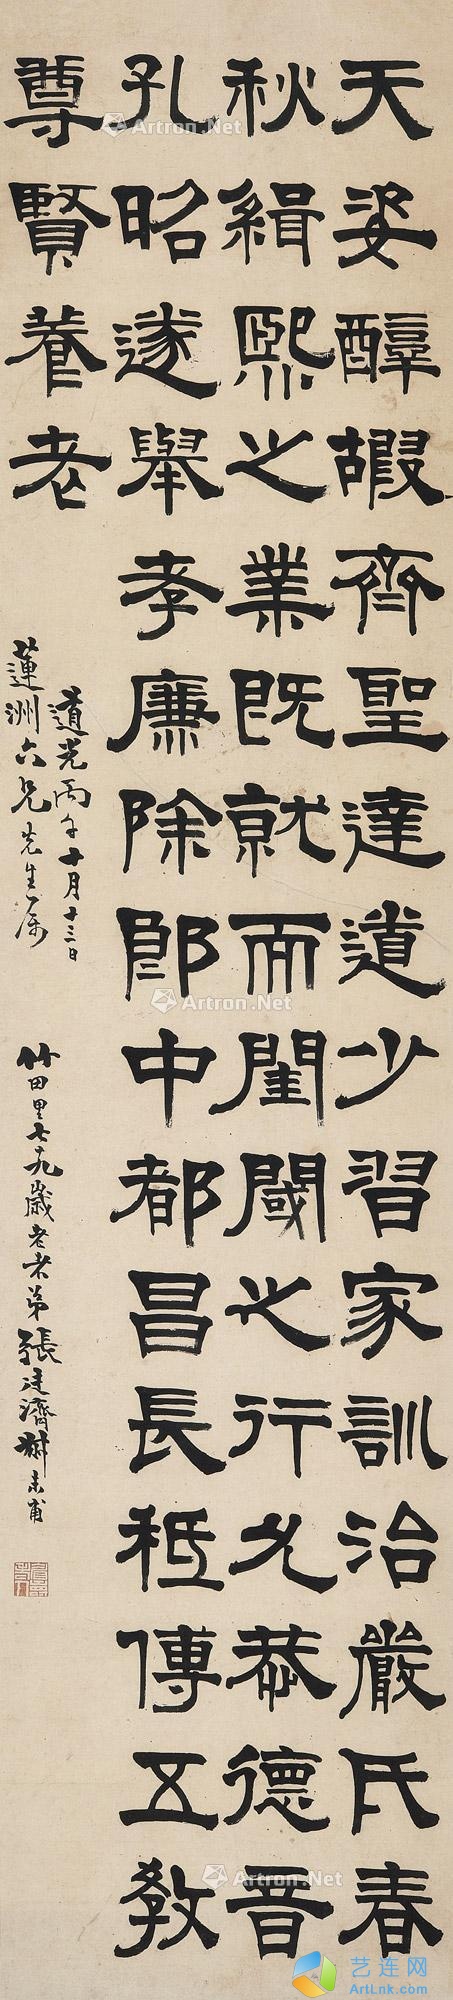 天姿醇嘏齊聖達道少習家訓治嚴氏春
秋緝熙之業既就而閨閾之行允恭德音
孔昭遂舉孝廉除郎中都昌長祗傳五教
尊賢養老
道光丙午十月十三日
蓮洲六兄先生属
竹田里七十九歲老者弟張廷濟叔未甫
Artron.Net
Artron.Net
Artron.Net
Artron.Net
Artron.Net
Artron.Net
艺连网
ArtLnk.com